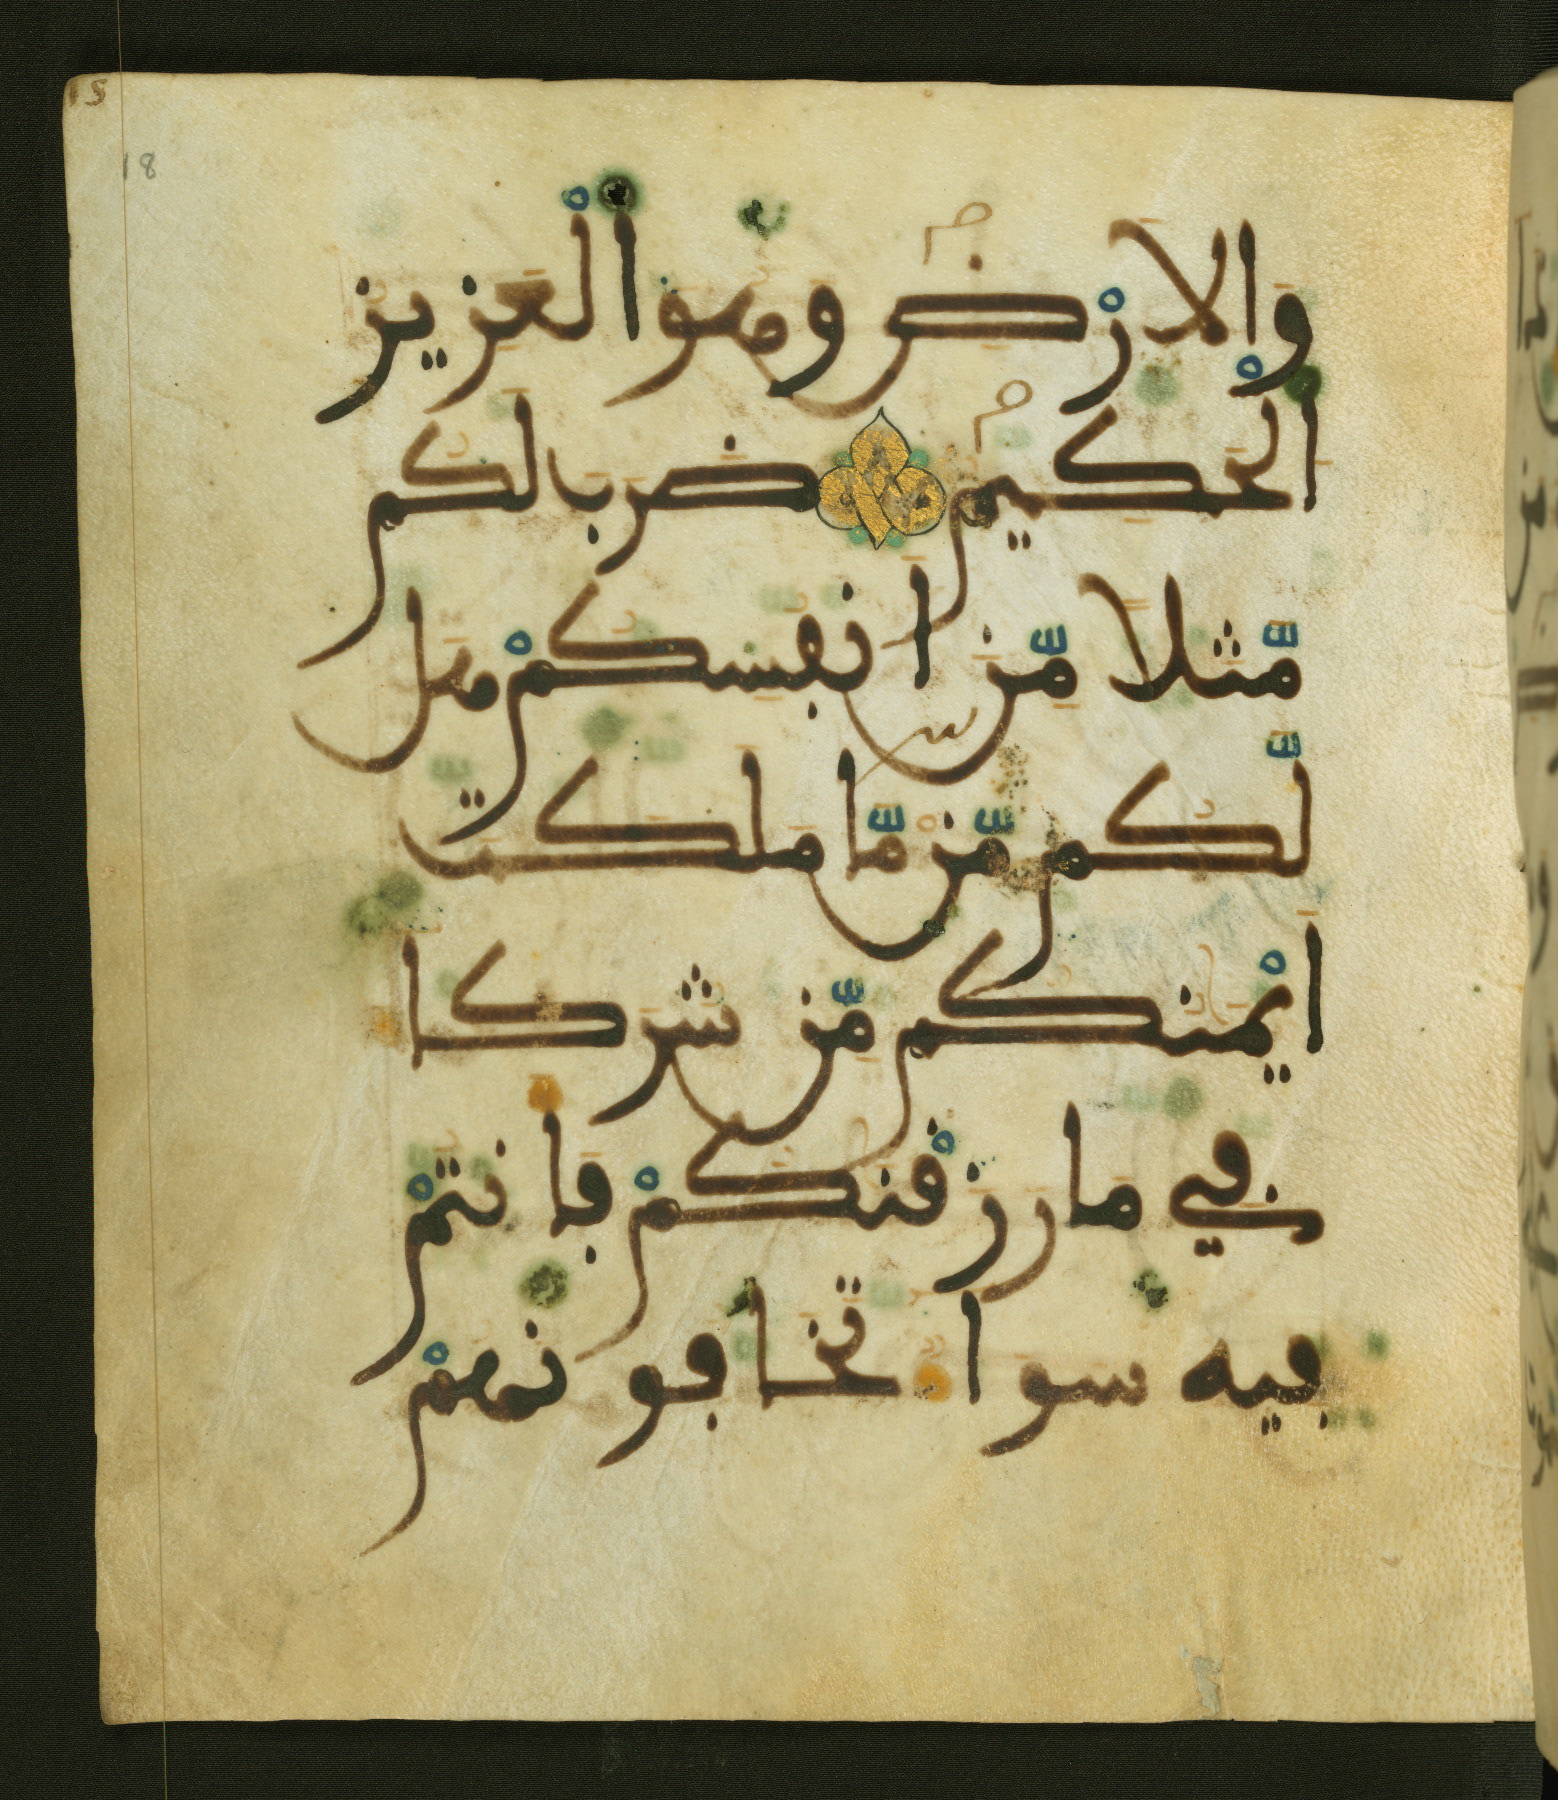 18
والارض وهو العزيز
الحكيم ضرب لكم
مّثلا مّن انفسكمْ هل
لّكم مّن مّا ملكت
ايْمنكم مّن شركا
في ما رزقْنكمْ فانتمْ
فيه سوا تخافونهمْ